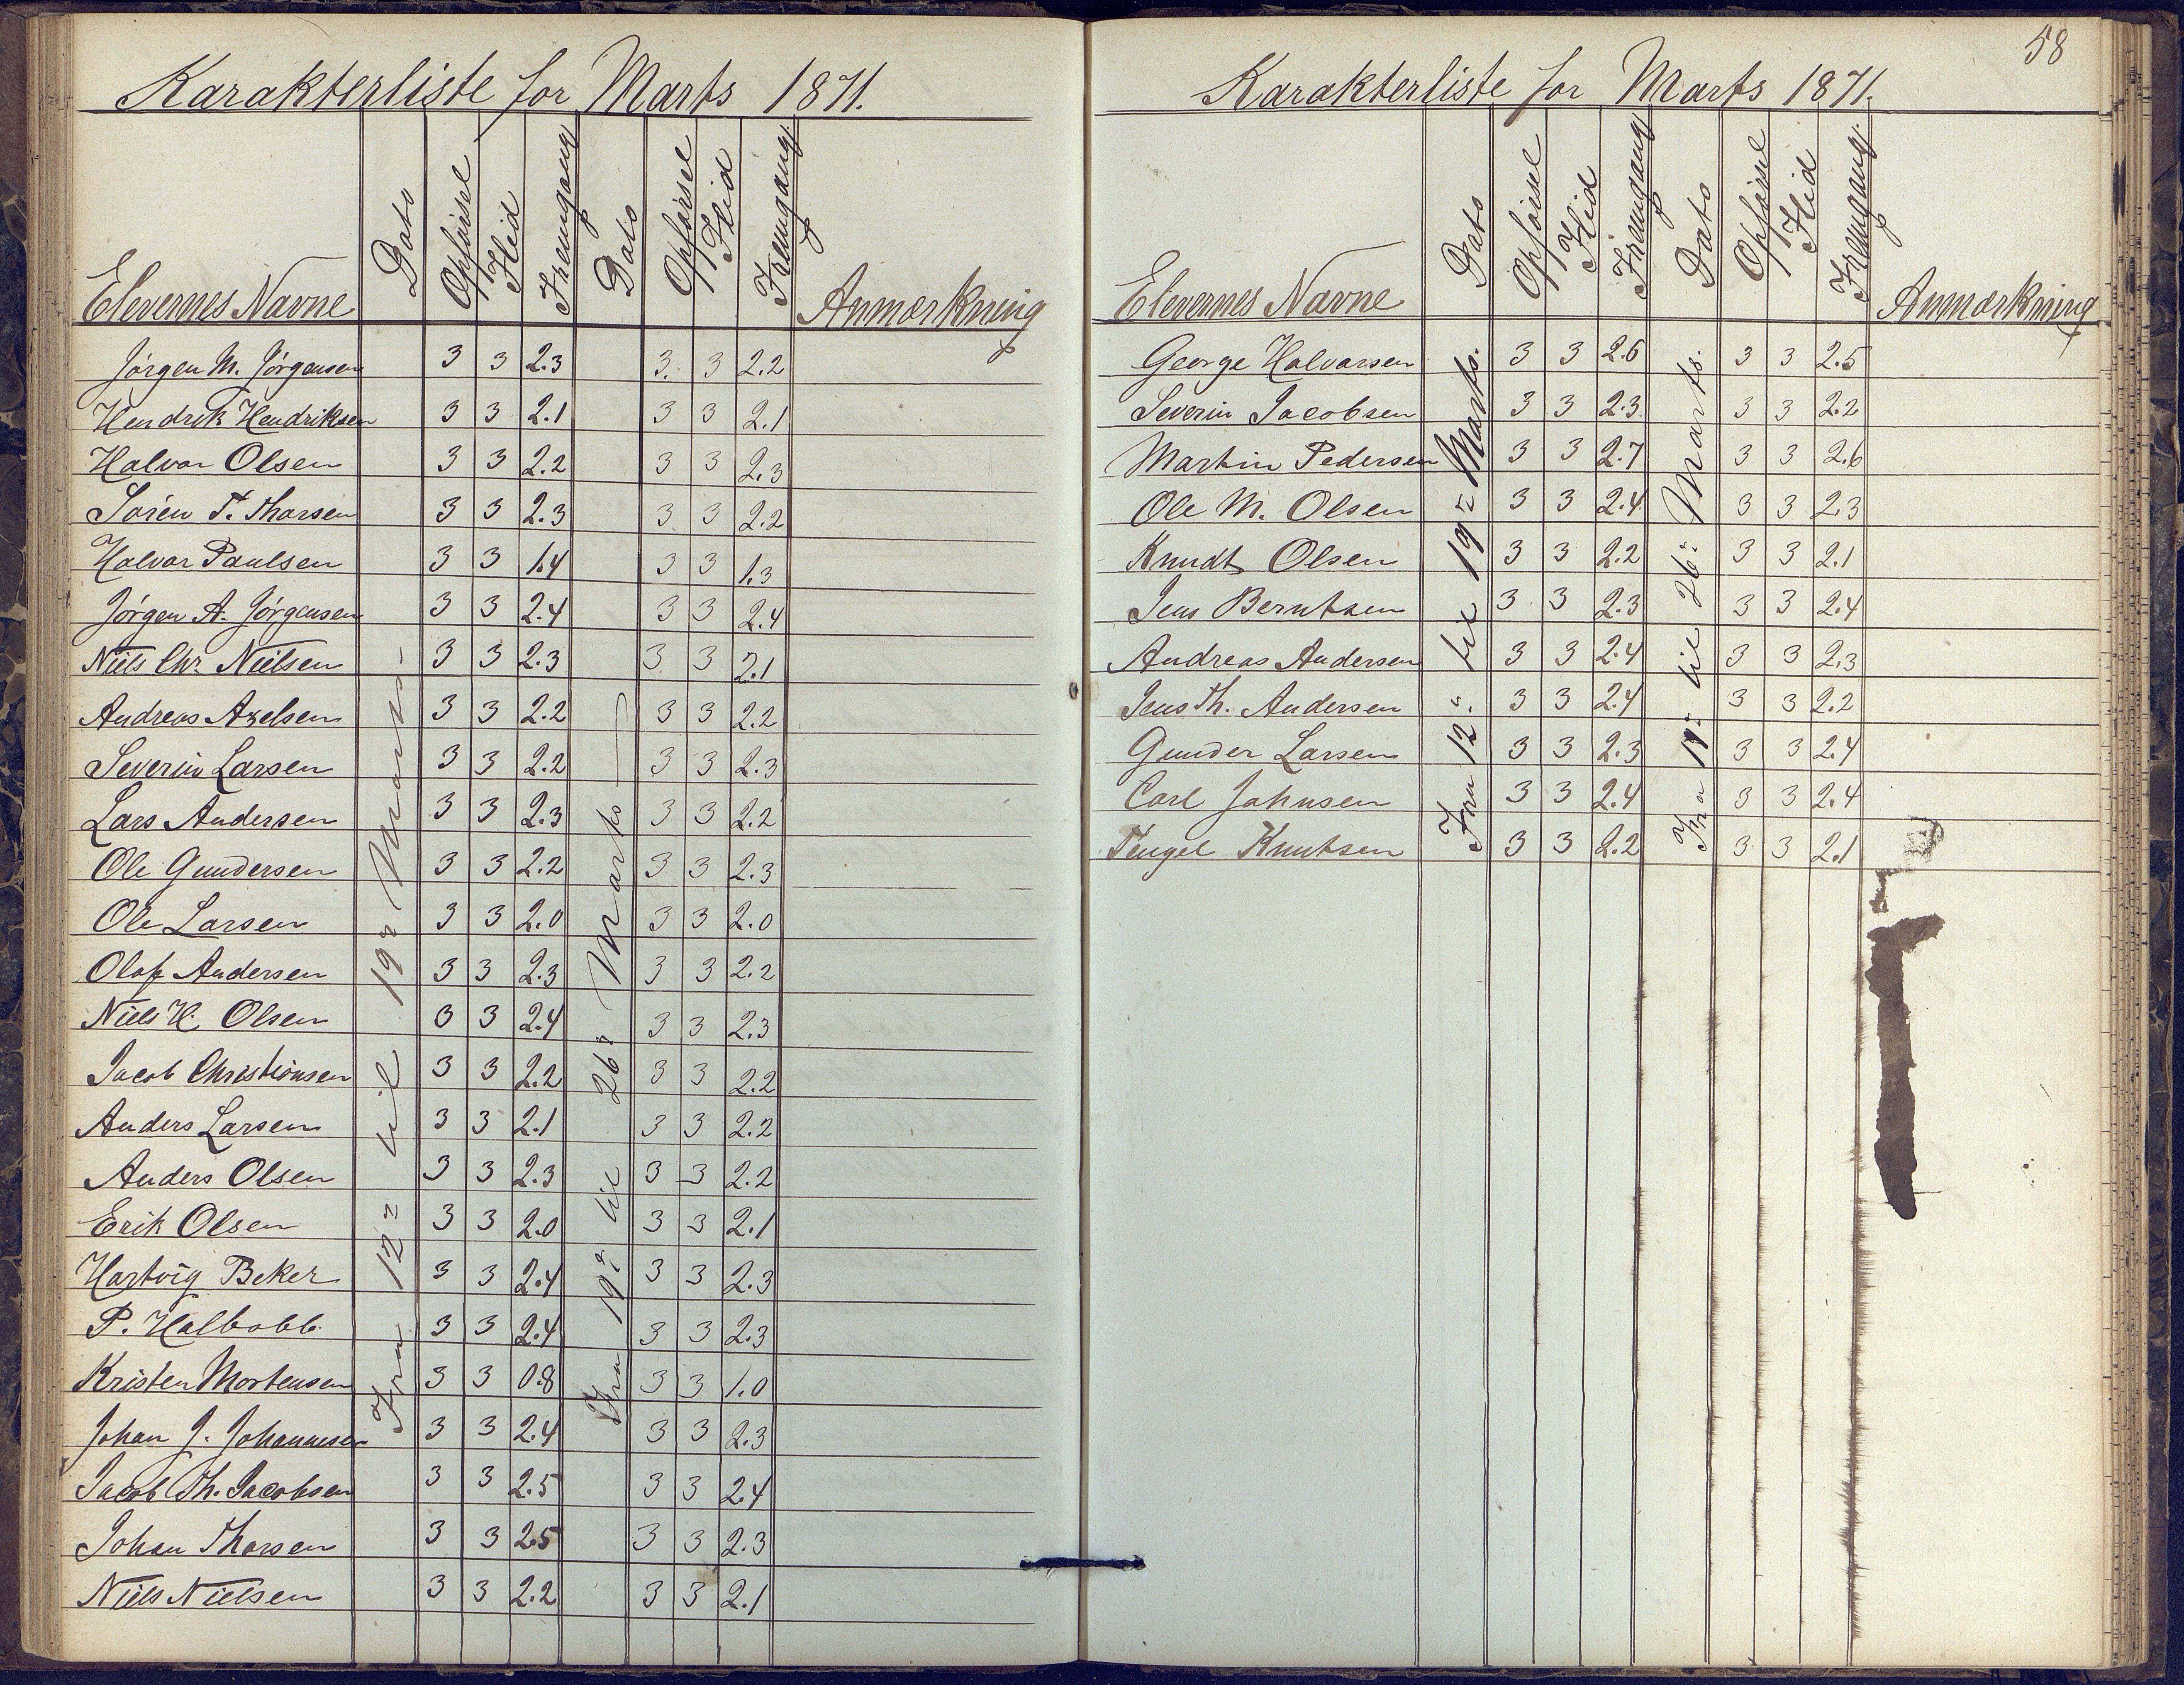 Karakterliste for Marts 1871.
Elevernes Navne Dato Opførsel Flid Fremgang Dato Opførsel Flid Fremgang. Anmærkning
Fra 12te til 19de Marts
Fra 19de til 26de Marts
Jørgen M. Jørgensen 3 3 2.3 3. 3 2.2
Hendrik Hendriksen 3 3 2.1 3 3 2.1
Halvor Olsen 3 3 2.2 3 3 2.3
Søren T. Thorsen 3 3 2.3 3 3 2.2
Halvor Paulsen 3 3 1.4 3 3 1.3
Jørgen A. Jørgensen 3 3 2.4 3 3 2.4
Niels Chr. Nielsen 3 3 2.3 3 3 2.1
Andreas Axelsen 3 3 2.2 3 3 2.2
Severin Larsen 3 3 2.2 3 3 2.3
Lars Andersen 3 3 2.3 3 3 2.2
Ole Gundersen 3 3 2.2 3 3 2.3
Ole Larsen 3 3 2.0 3 3 2.0
Olaf Andersen 3 3 2.3 3 3 2.2
Niels H. Olsen 3 3 2.4 3 3 2.3
Jacob Christiansen 3 3 2.2 3 3 2.2
Anders Larsen 3 3 2.1 3 3 2.2
Anders Olsen 3 3 2.3 3 3 2.2
Erik Olsen 3 3 2.0 3 3 2.1
Hartvig Beker 3 3 2.4 3 3 2.3
P. Kalbobb. 3 3 2.4 3 3 2.3
Kristen Mortensen 3 3 0.8 3 3 1.0
Johan J. Johannesen 3 3 2.4 3 3 2.3
Jacob Th. Jacobsen 3 3 2.5 3 3 2.4
Johan Thorsen 3 3 2.5 3 3 2.3
Niels Nielsen 3 3 2.2 3 3 2.1
58
Karakterliste for Marts 1871.
Elevernes Navne Dato Opførsel Flid Fremgang Dato Opførsel Flid Fremgang. Anmærkning
Fra 12te til 19de Marts.
Fra 19de til 26de Marts.
George Halvorsen 3 3 2.6 3 3 2.5
Severin Jacobsen 3 3 2.3 3 3 2.2
Martin Pedersen 3 3 2.7 3 3 2.6
Ole M. Olsen 3 3 2.4 3 3 2.3
Knudt Olsen 3 3 2.2 3 3 2.1
Jens Berntsen 3 3 2.3 3 3 2.4
Andreas Andersen 3 3 2.4 3 3 2.3
Jens Th. Andersen 3 3 2.4 3 3 2.2
Gunder Larsen 3 3 2.3 3 3 2.4
Carl Johnsen 3 3 2.4 3 3 2.4
Tengel Knutsen 3 3 2.2 3 3 2.1